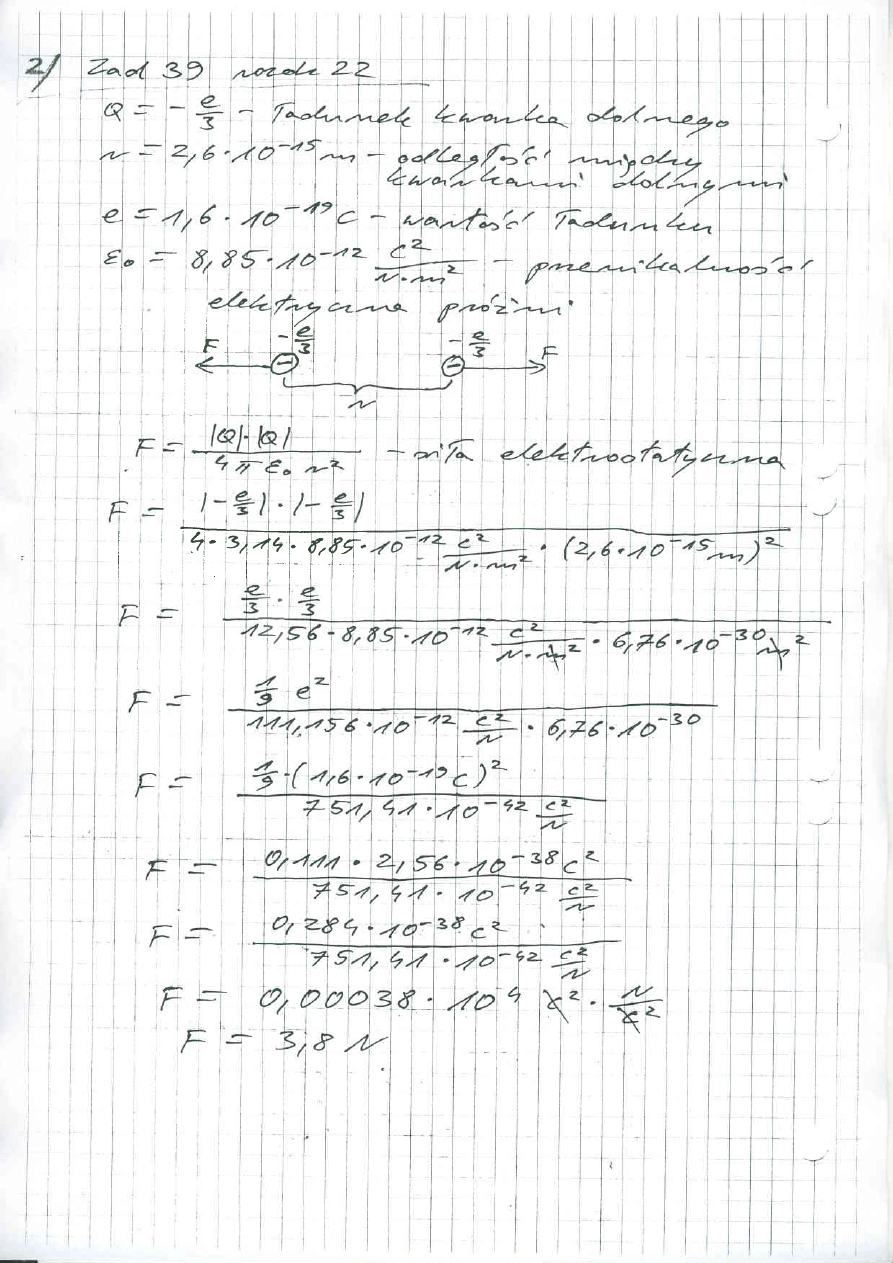 2) Zad 39 rozdz 22
Q = - e/3 - ładunek kwarka dolnego
r = 2,6 · 10⁻¹⁵ m - odległość między
kwarkami dolnymi
e = 1,6 · 10⁻¹⁹ C - wartość ładunku
ε₀ = 8,85 · 10⁻¹² C²/(N·m²) - przenikalność
elektryczna próżni
F - e/3 - e/3 F
r
F = |Q|·|Q| / (4 π ε₀ r²) - siła elektrostatyczna
F = |- e/3| · |- e/3| / (4 · 3,14 · 8,85 · 10⁻¹² C²/(N·m²) · (2,6 · 10⁻¹⁵ m)²)
F = e/3 · e/3 / (12,56 · 8,85 · 10⁻¹² C²/(N·m²) · 6,76 · 10⁻³⁰ m²)
F = 1/9 e² / (111,156 · 10⁻¹² C²/N · 6,76 · 10⁻³⁰)
F = 1/9 · (1,6 · 10⁻¹⁹ C)² / (751,41 · 10⁻⁴² C²/N)
F = 0,111 · 2,56 · 10⁻³⁸ C² / (751,41 · 10⁻⁴² C²/N)
F = 0,284 · 10⁻³⁸ C² / (751,41 · 10⁻⁴² C²/N)
F = 0,00038 · 10⁴ C² · N/C²
F = 3,8 N